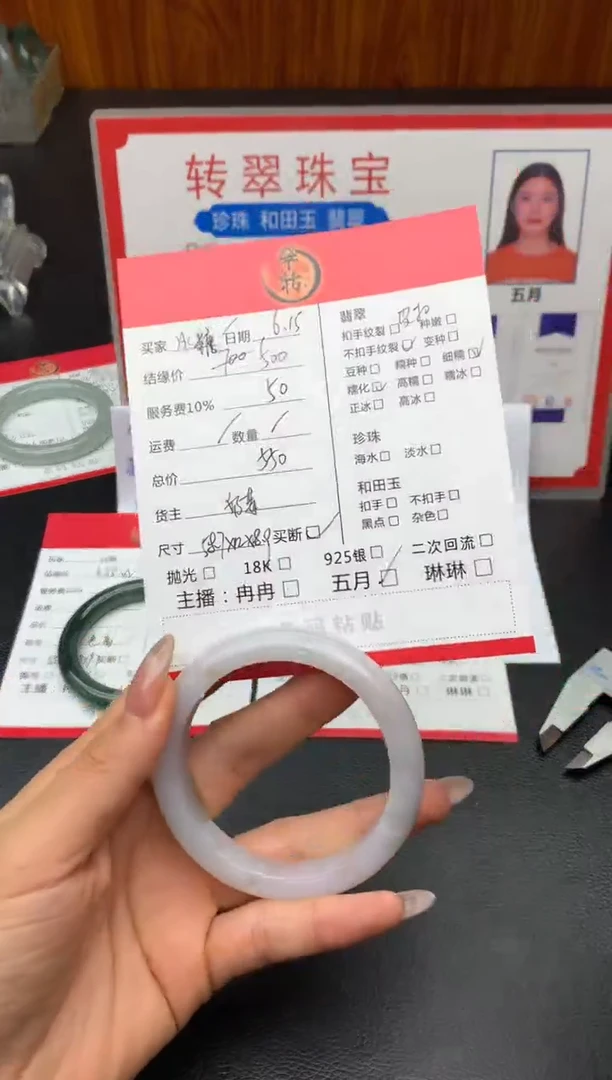 转翠珠宝
珍珠 和田玉 翡翠
五月
买家 冰糖 日期 6.15
结缘价 700 500
服务费10% 50
运费 / 数量 /
总价 550
货主
尺寸 买断☐
抛光☐ 18K☐ 925银☐ 二次回流☐
主播：冉冉☐ 五月☑ 琳琳☐
翡翠
扣手纹裂☐ 种嫩☐
不扣手纹裂☑ 变种☐
豆种☐ 糯种☐ 细糯☑
糯化☑ 高糯☐ 糯冰☐
正冰☐ 高冰☐
珍珠
海水☐ 淡水☐
和田玉
扣手☐ 不扣手☐
黑点☐ 杂色☐
粘贴
主播
琳琳☐